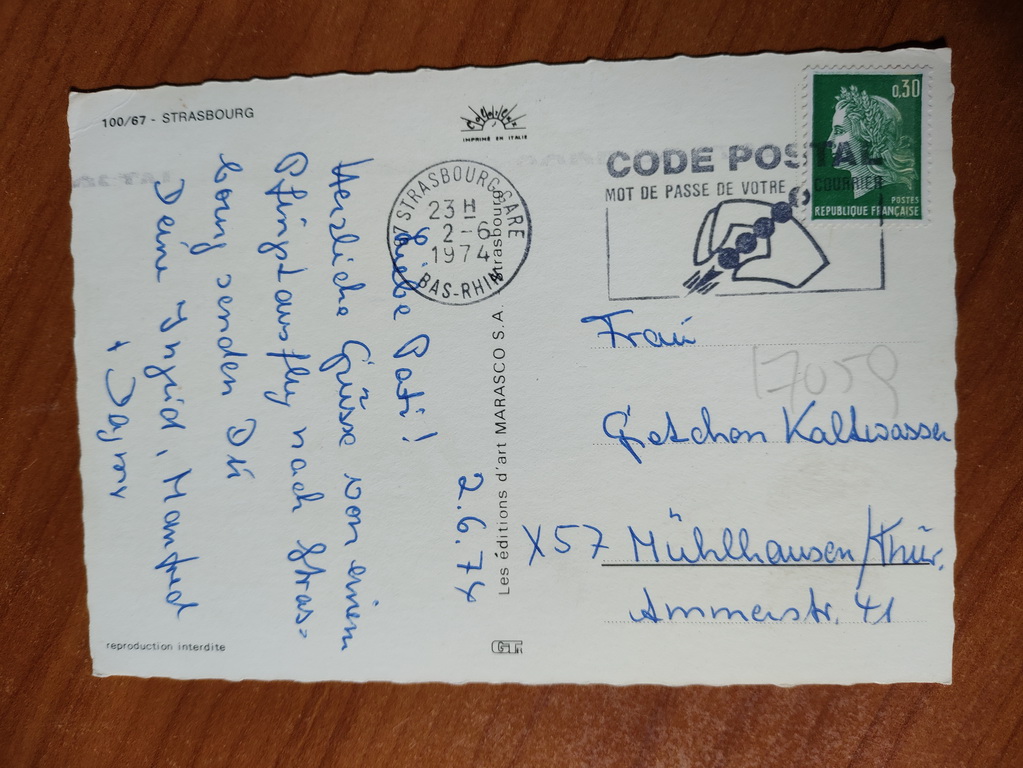 100/67 - STRASBOURG
IMPRIMÉ EN ITALIE
67 STRASBOURG-GARE
23 H
2-6
1974
BAS-RHIN
CODE POSTAL
MOT DE PASSE DE VOTRE COURRIER
0,30
POSTES
REPUBLIQUE FRANÇAISE
2.6.74
Liebe Pati!
Herzliche Grüsse von einem
Pfingstausflug nach Stras-
bourg senden Dir
Deine Yngrid, Manfred
+ Dagmar
Les éditions d'art MARASCO S.A. Strasbourg
Frau
17059
Gretchen Kaltwasser
X57 Mühlhausen/Thür.
Ammerstr. 41
reproduction interdite